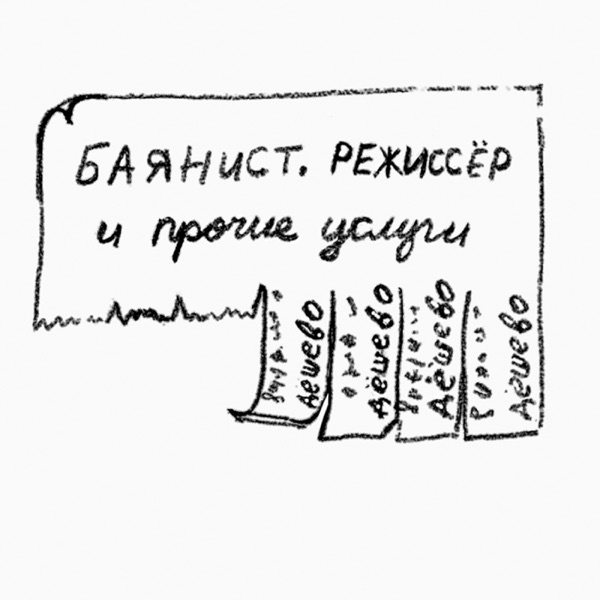 БАЯНИСТ. РЕЖИССЁР
и прочие услуги
дёшево
дёшево
дёшево
дёшево